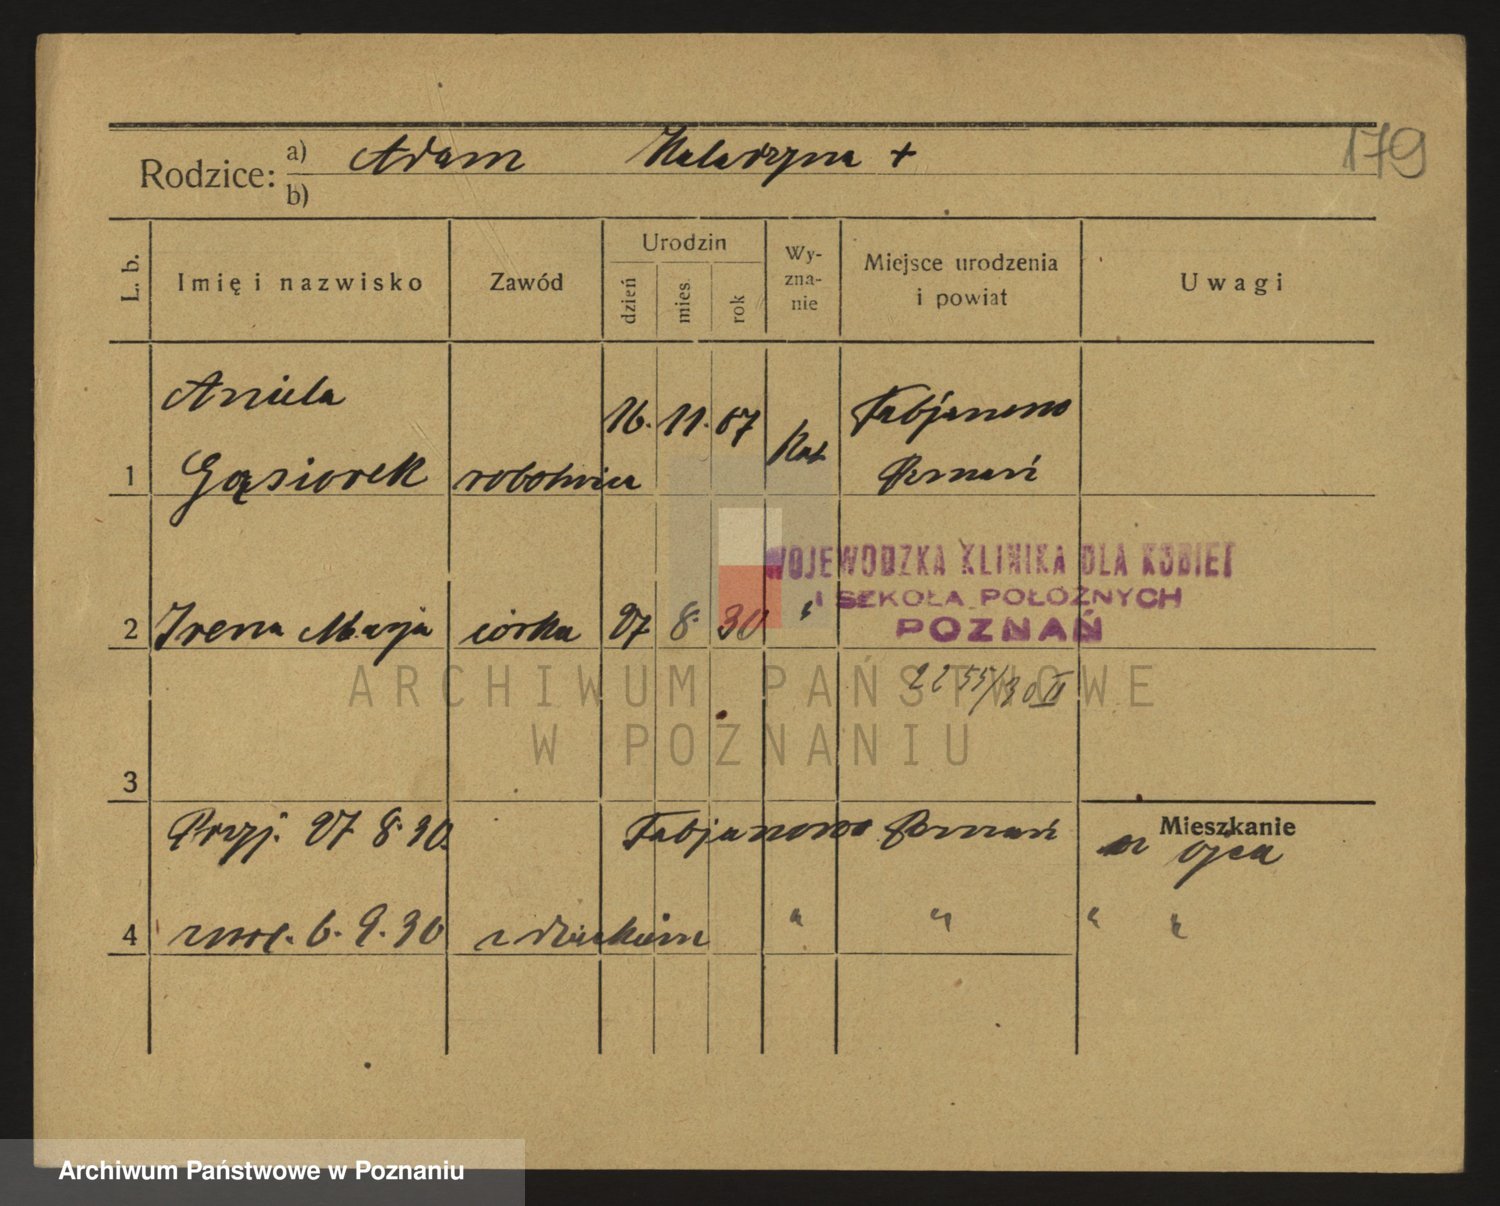 179
Rodzice: a) Adam Katarzyna +
b)
L. b.
Imię i nazwisko
Zawód
Urodzin
dzień
mies.
rok
Wy-
zna-
nie
Miejsce urodzenia
i powiat
Uwagi
Aniela
16. 11. 07 Fabjanowo
1 Gąsiorek robotnica Kat Poznań
WOJEWODZKA KLINIKA DLA KOBIET
I SZKOŁA POŁOŻNYCH
POZNAŃ
2 Irena Marja córka 27 8. 30 "
2255/30 II
ARCHIWUM PAŃSTWOWE
W POZNANIU
3
Mieszkanie
Przyj. 27 8. 30. Fabjanowo Poznań u ojca
4 6. 9. 30 z dzieckiem " " " "
Archiwum Państwowe w Poznaniu